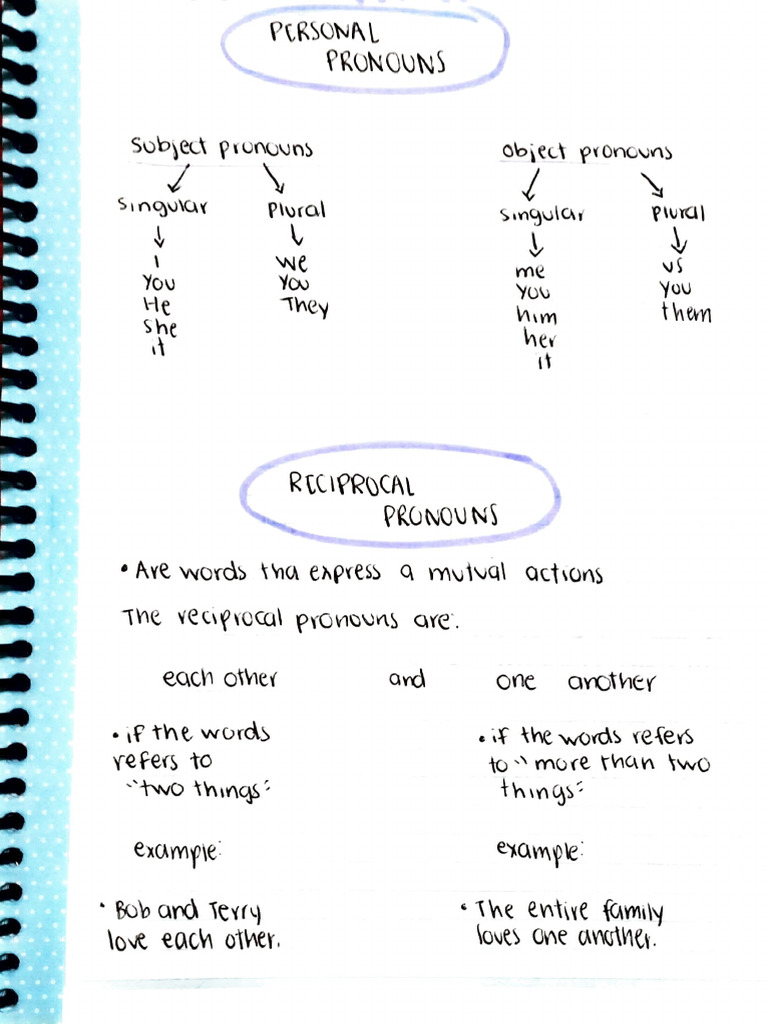 PERSONAL
PRONOUNS
Subject pronouns
singular
I
You
He
She
it
Plural
we
You
They
object pronouns
singular
me
you
him
her
it
plural
us
you
them
RECIPROCAL
PRONOUNS
• Are words tha express a mutual actions
The reciprocal pronouns are:
each other and one another
• if the words
refers to
"two things"
example:
• Bob and Terry
love each other.
• if the words refers
to "more than two
things"
example:
• The entire family
loves one another.